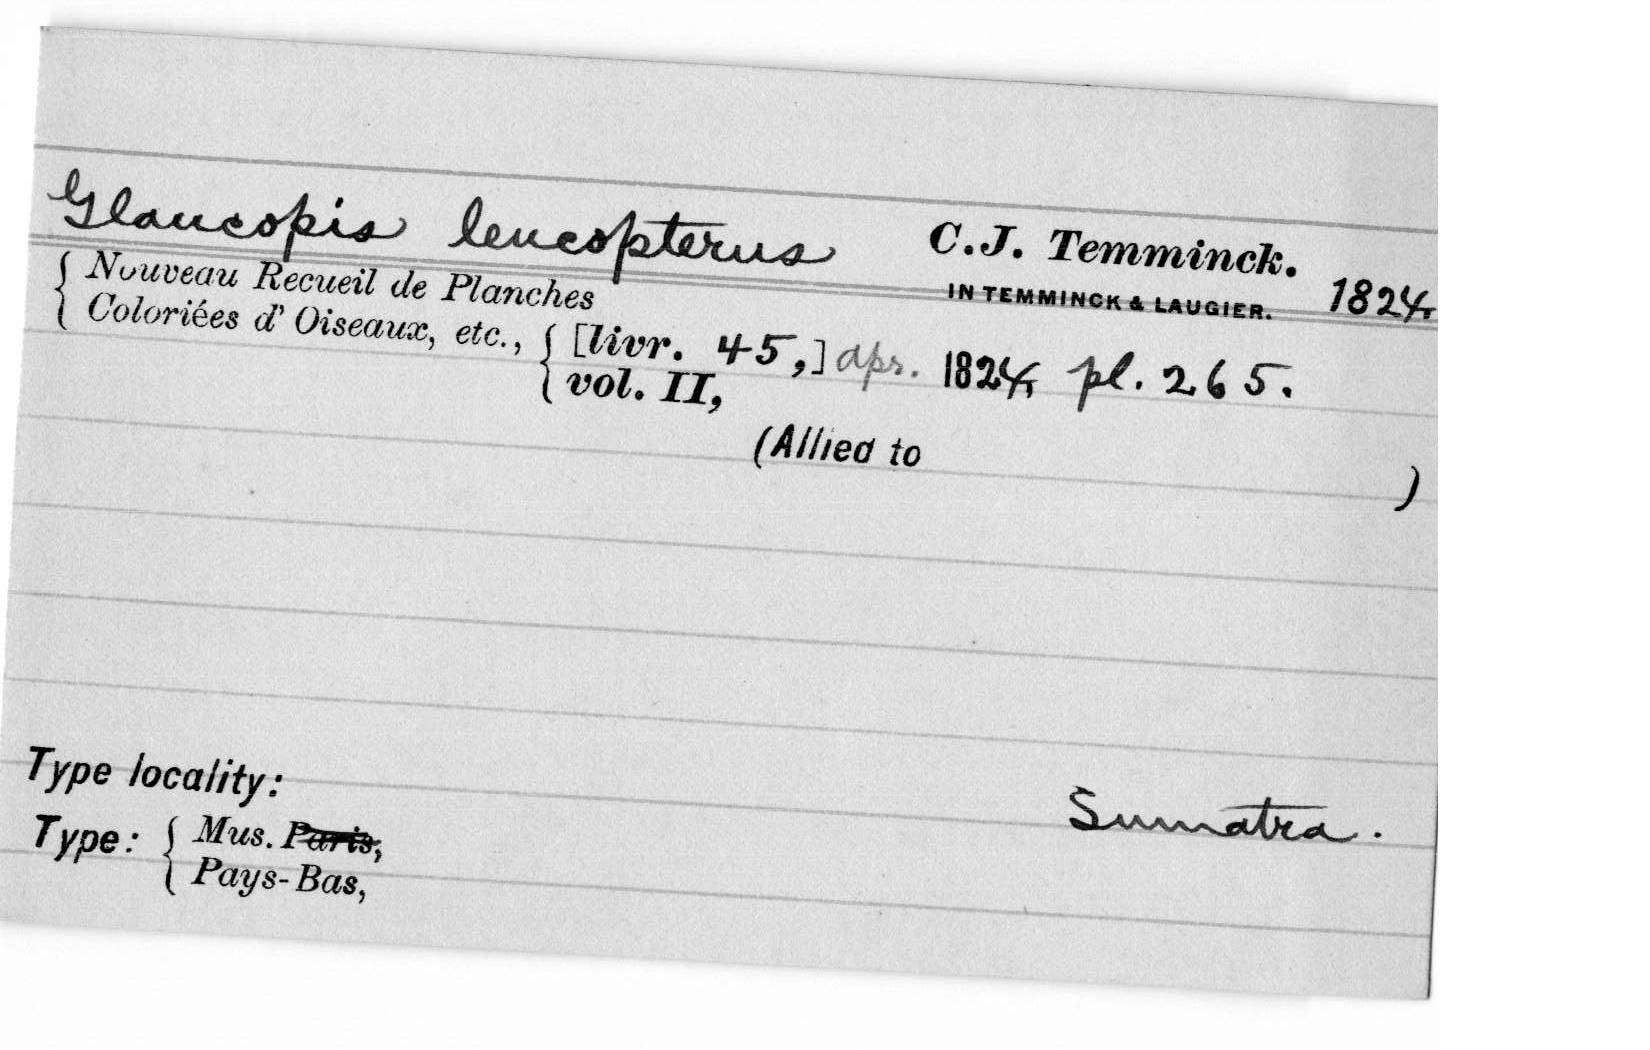 Glaucopis leucopterus C.J. Temminck.
IN TEMMINCK & LAUGIER. 1824
{ Nouveau Recueil de Planches
Coloriées d' Oiseaux, etc., { [livr. 45,] apr. 1824 pl. 265.
vol. II,
(Allied to )
Type locality: Sumatra.
Type: { Mus. Paris,
Pays-Bas,